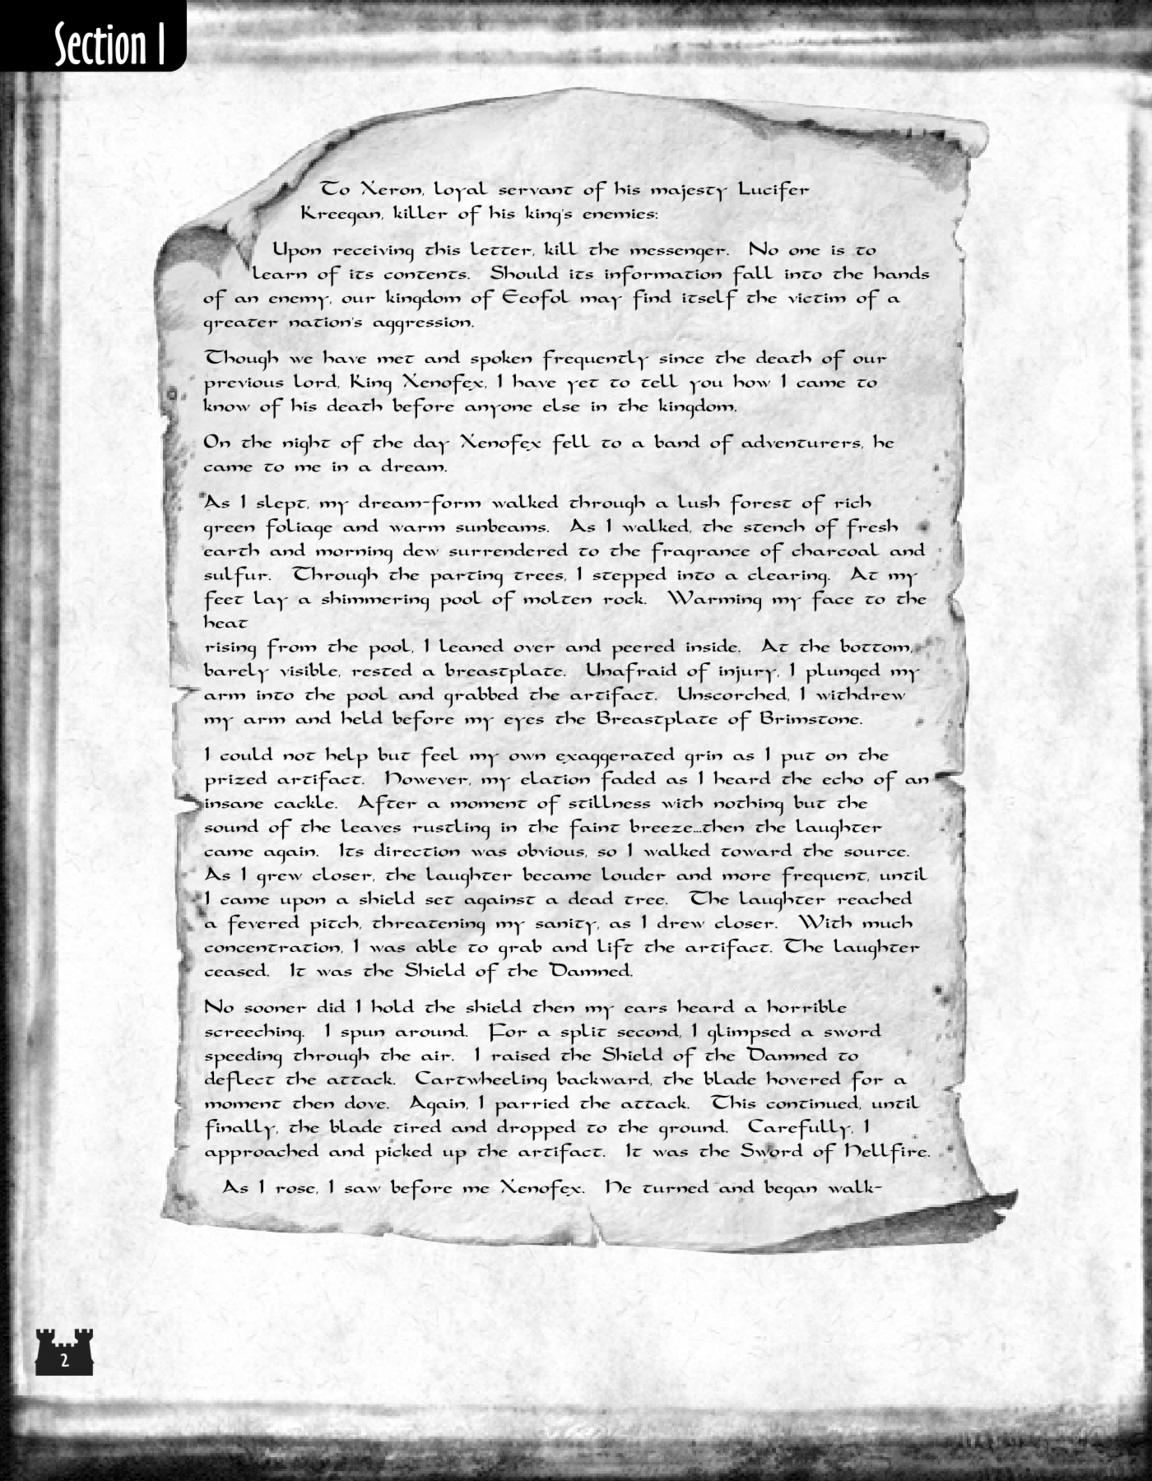 Section I
To Xeron, loyal servant of his majesty Lucifer
Kreegan, killer of his king's enemies:
Upon receiving this letter, kill the messenger. No one is to
learn of its contents. Should its information fall into the hands
of an enemy, our kingdom of Eeofol may find itself the victim of a
greater nation's aggression.
Though we have met and spoken frequently since the death of our
previous lord, King Xenofex, I have yet to tell you how I came to
know of his death before anyone else in the kingdom.
On the night of the day Xenofex fell to a band of adventurers, he
came to me in a dream.
As I slept, my dream-form walked through a lush forest of rich
green foliage and warm sunbeams. As I walked, the stench of fresh
earth and morning dew surrendered to the fragrance of charcoal and
sulfur. Through the parting trees, I stepped into a clearing. At my
feet lay a shimmering pool of molten rock. Warming my face to the
heat
rising from the pool, I leaned over and peered inside. At the bottom,
barely visible, rested a breastplate. Unafraid of injury, I plunged my
arm into the pool and grabbed the artifact. Unscorched, I withdrew
my arm and held before my eyes the Breastplate of Brimstone.
I could not help but feel my own exaggerated grin as I put on the
prized artifact. However, my elation faded as I heard the echo of an
insane cackle. After a moment of stillness with nothing but the
sound of the leaves rustling in the faint breeze...then the laughter
came again. Its direction was obvious, so I walked toward the source.
As I grew closer, the laughter became louder and more frequent, until
I came upon a shield set against a dead tree. The laughter reached
a fevered pitch, threatening my sanity, as I drew closer. With much
concentration, I was able to grab and lift the artifact. The laughter
ceased. It was the Shield of the Damned.
No sooner did I hold the shield then my ears heard a horrible
screeching. I spun around. For a split second, I glimpsed a sword
speeding through the air. I raised the Shield of the Damned to
deflect the attack. Cartwheeling backward, the blade hovered for a
moment then dove. Again, I parried the attack. This continued, until
finally, the blade tired and dropped to the ground. Carefully, I
approached and picked up the artifact. It was the Sword of Hellfire.
As I rose, I saw before me Xenofex. He turned and began walk-
2